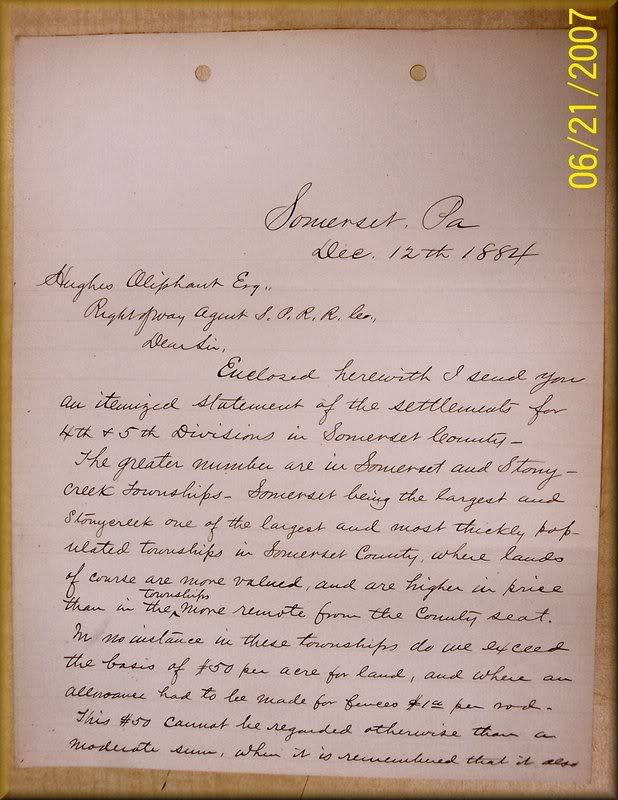 06/21/2007
Somerset, Pa
Dec. 12th 1884
Hughes Oliphant Esq.,
Right of way Agent S. P. R. R. Co.,
Dear Sir,
Enclosed herewith I send you
an itemized statement of the settlements for
4th & 5th Divisions in Somerset County—
The greater number are in Somerset and Stony-
creek Townships— Somerset being the largest and
Stonycreek one of the largest and most thickly pop-
ulated townships in Somerset County, where lands
of course are more valued, and are higher in price
than in the townships more remote from the County seat.
In no instance in these townships do we exceed
the basis of $50 per acre for land, and where an
allowance had to be made for fences $1 00 per rod.
This $50 cannot be regarded otherwise than a
moderate sum, when it is remembered that it also